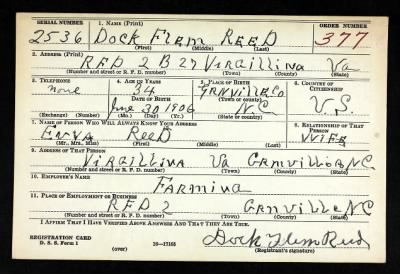 SERIAL NUMBER 1. NAME (Print) ORDER NUMBER
2536 Dock Flem Reed 377
(First) (Middle) (Last)
2. ADDRESS (Print)
RFD 2 B 27 Virgillina Va
(Number and street or R. F. D. number) (Town) (County) (State)
3. TELEPHONE 4. AGE IN YEARS 5. PLACE OF BIRTH 6. COUNTRY OF CITIZENSHIP
none 34 Granville Co
DATE OF BIRTH (Town or county)
June 30 1906 N.C. U.S.
(Exchange) (Number) (Mo.) (Day) (Yr.) (State or country)
7. NAME OF PERSON WHO WILL ALWAYS KNOW YOUR ADDRESS 8. RELATIONSHIP OF THAT PERSON
Reed Wife
(Mr., Mrs., Miss) (First) (Middle) (Last)
9. ADDRESS OF THAT PERSON
Virgillina Va N.C.
(Number and street or R. F. D. number) (Town) (County) (State)
10. EMPLOYER'S NAME
Farming
11. PLACE OF EMPLOYMENT OR BUSINESS
RFD 2 Granville NC
(Number and street or R. F. D. number) (Town) (County) (State)
I AFFIRM THAT I HAVE VERIFIED ABOVE ANSWERS AND THAT THEY ARE TRUE.
REGISTRATION CARD
D. S. S. Form 1 16-17105 Dock Flem Reed
(over) (Registrant's signature)